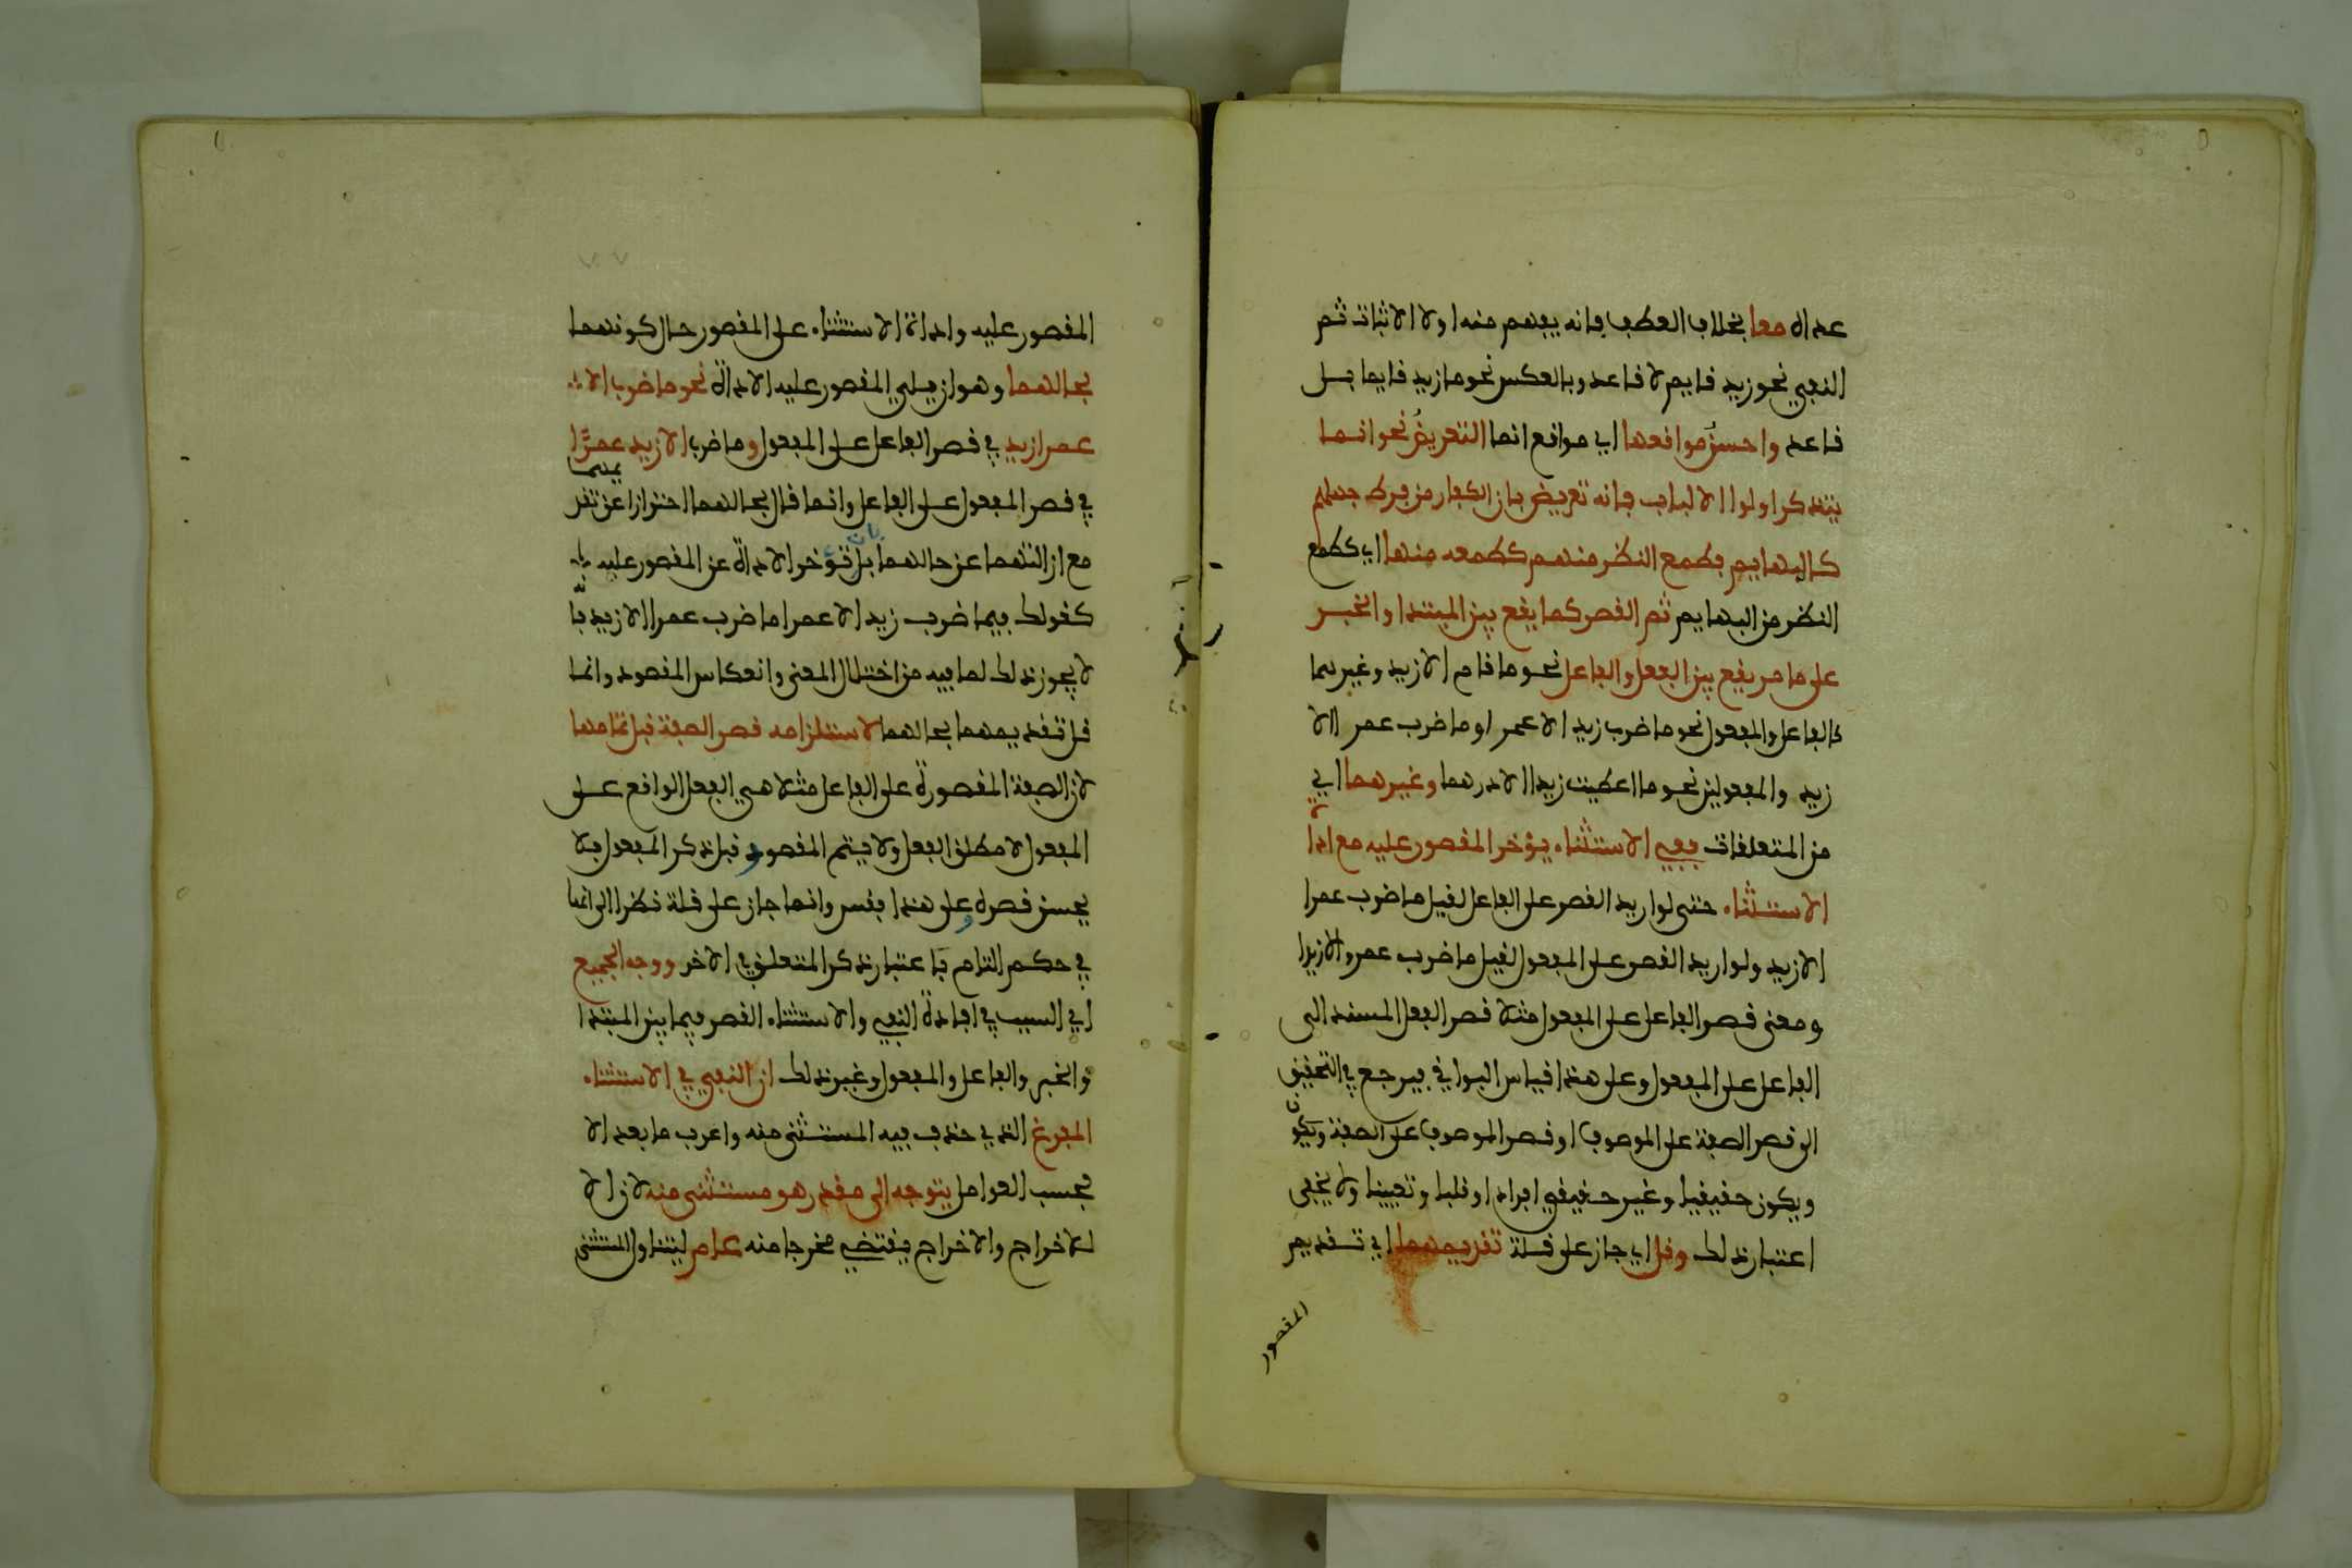 عداه معا بخلاف العطف فانه يفهم منه اولا الاثبات ثم
النفي نحو زيد قايم لا قاعد وبالعكس نحو ما زيد قايما بل
قاعد واحسن مواقعها اي مواقع انما التعريض نحو انما
يتذكر اولوا الالباب فانه تعريض بان الكفار من فرط جهلهم
كالبهايم فطمع النظر منهم كطمعه منها اي كطمع
النظر من البهايم ثم القصر كما يقع بين المبتدا والخبر
على ما مر يقع بين الفعل والفاعل نحو ما قام الا زيد وغيرهما
كالفاعل والمفعول نحو ما ضرب زيد الا عمرا وما ضرب عمر االا
زيد والمفعولين نحو ما اعطيت زيدا الا درهما وغيرهما اي
من المتعلقات ففي الاستثناء يؤخر المقصور عليه مع اداة
الاستثناء حتى لو اريد القصر على الفاعل لقيل ما ضرب عمرا
الا زيد ولو اريد القصر على المفعول لقيل ما ضرب عمرو الا زيدا
ومعنى قصر الفاعل على المفعول مثلا قصر الفعل المسند الى
الفاعل على المفعول وعلى هذا قياس البواقي فيرجع في التحقيق
الى قصر الصفة على الموصوف او قصر الموصوف على الصفة ويكون
ويكون حقيقيا وغير حقيقي افرادا وقلبا وتعيينا ولا يخفى
اعتبار ذلك وقل اي جاز على قلة تقديمهما اي تقديم
المقصور
المقصور عليه واداة الاستثناء على المقصور حال كونهما
بحالهما وهو ان يلي المقصور عليه الاداة نحو ما ضرب الا
عمرا زيد في قصر الفاعل على المفعول وما ضرب الا زيد عمرا
في قصر المفعول على الفاعل وانما قال بحالهما احترازا عن تقديمهما
مع ازالتهما عن حالهما بان تؤخر الاداة عن المقصور عليه
كقولك فيما ضرب زيد الا عمرا ما ضرب عمرا الا زيد
لا يجوز ذلك لما فيه من اختلال المعنى وانعكاس المقصود وانما
قل تقديمهما بحالهما لاستلزامه قصر الصفة قبل تمامها
لان الصفة المقصورة على الفاعل مثلا هي الفعل الواقع على
المفعول لا مطلق الفعل ولا يتم المقصود قبل ذكر المفعول فلا
يحسن قصره وعلى هذا فقس وانما جاز على قلة نظرا الى انها
في حكم التام باعتبار ذكر المتعلق في الاخر ووجه الجميع
اي السبب في افادة النفي والاستثناء القصر فيما بين المبتدا
والخبر والفاعل والمفعول وغير ذلك ان النفي في الاستثناء
المفرغ الذي حذف فيه المستثنى منه واعرب ما بعد الا
بحسب العوامل يتوجه الى مقدر هو مستثنى منه لان الا
للاخراج والاخراج يقتضي مخرجا منه عام ليتناول المستثنى